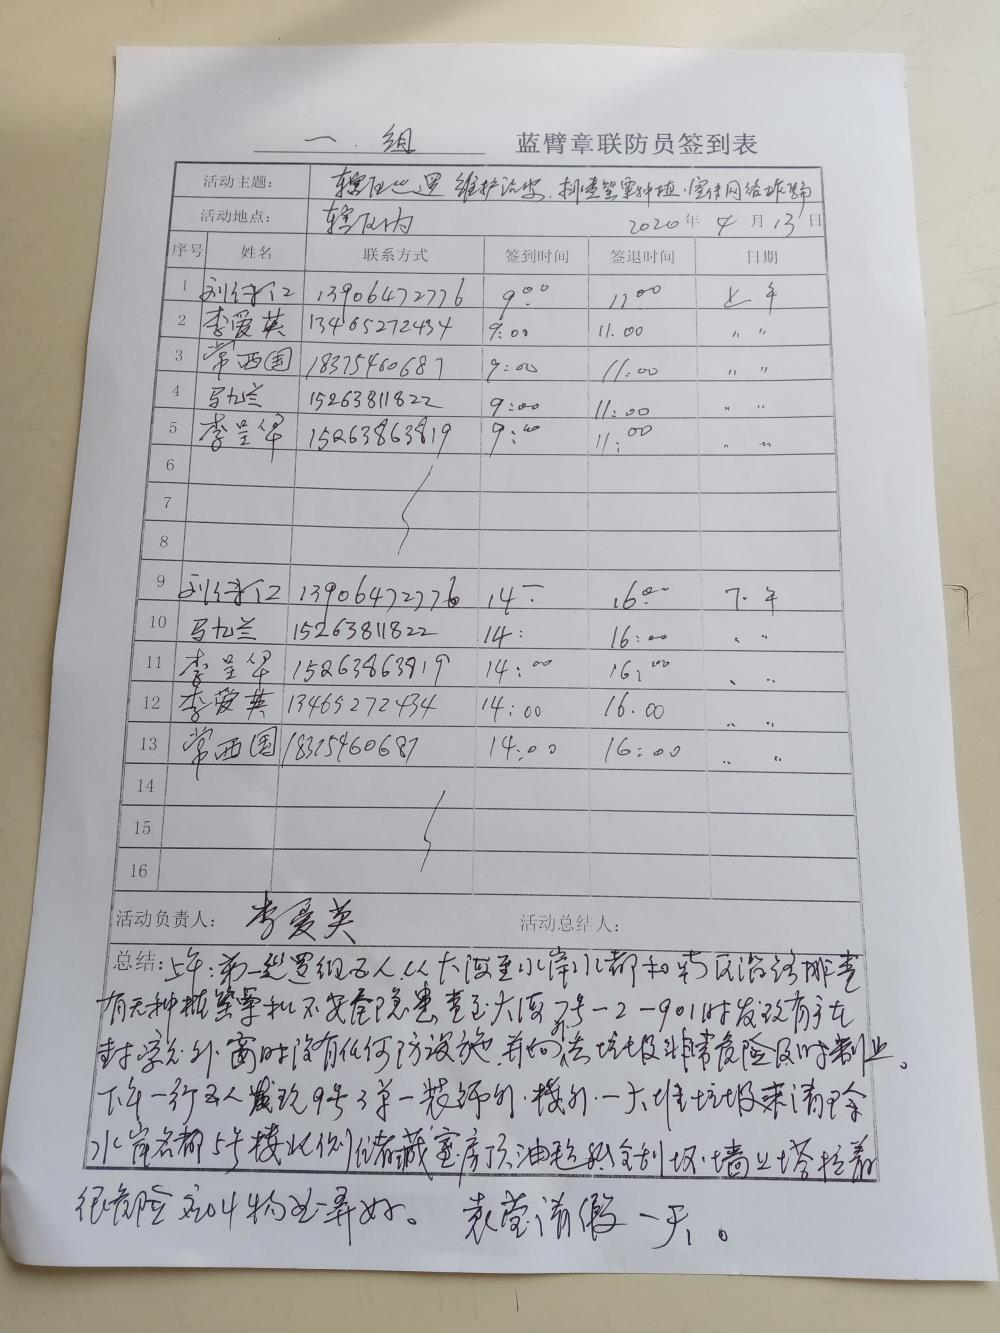 一组 蓝臂章联防员签到表
活动主题： 辖区巡逻 维护治安、排查罂粟种植·宣传网络诈骗
活动地点： 辖区内 2020年4月13日
序号 姓名 联系方式 签到时间 签退时间 日期
1 13906472776 9:00 11:00 上午
2 李爱英 13465272434 9:00 11.00 〃 〃
3 常西国 18375460687 9:00 11:00 〃 〃
4 马九兰 15263811822 9:00 11:00 〃 〃
5 李呈华 15263863819 9:00 11:00 〃 〃
6
7
8
9 13906472776 14 16:00 下午
10 马九兰 15263811822 14: 16:00 〃 〃
11 李呈华 15263863819 14:00 16:00 〃 〃
12 李爱英 13465272434 14:00 16.00 〃 〃
13 常西国 18375460687 14:00 16:00 〃 〃
14
15
16
活动负责人： 李爱英 活动总结人：
总结：上午：第一巡逻组五人从大 至水岸 都和 区 排查
有无种植罂粟和不安全隐患查至大 7号-2-901时发现有 在
封 窗时没有任何防设施 并向外 垃圾非常危险及时制止。
下午一行五人发现9号3单一装饰 楼外一大堆垃圾未清除
水岸名都5号楼北侧储藏室房顶油毡 全刮坏·墙上塔拉着
很危险 物业弄好。 袁莹请假一天。